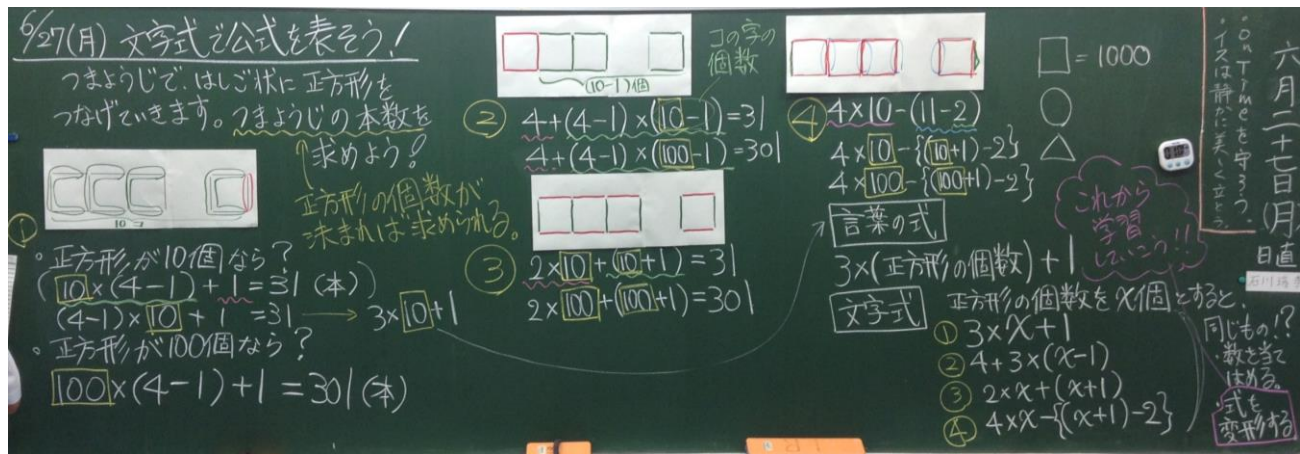 6/27(月) 文字式で公式を表そう!
つまようじで、はしご状に正方形を
つなげていきます。つまようじの本数を
求めよう!
10コ
正方形の個数が
決まれば求められる。
①
・正方形が10個なら?
10×(4-1)+1=31(本)
(4-1)×10+1=31
3×10+1
・正方形が100個なら?
100×(4-1)+1=301(本)
(10-1)個
コの字の
個数
②
4+(4-1)×(10-1)=31
4+(4-1)×(100-1)=301
③
2×10+(10+1)=31
2×100+(100+1)=301
④
4×10-(11-2)
4×10-{(10+1)-2}
4×100-{(100+1)-2}
言葉の式
3×(正方形の個数)+1
文字式
正方形の個数をx個とすると、
① 3×x+1
② 4+3×(x-1)
③ 2×x+(x+1)
④ 4×x-{(x+1)-2}
□=1000
○
△
これから
学習
していこう!!
同じもの!?
・数を当て
はめる。
・式を
変形する
・on Timeを守ろう。
・イスは静かに美しく立とう
六月二十七日(月)
日直